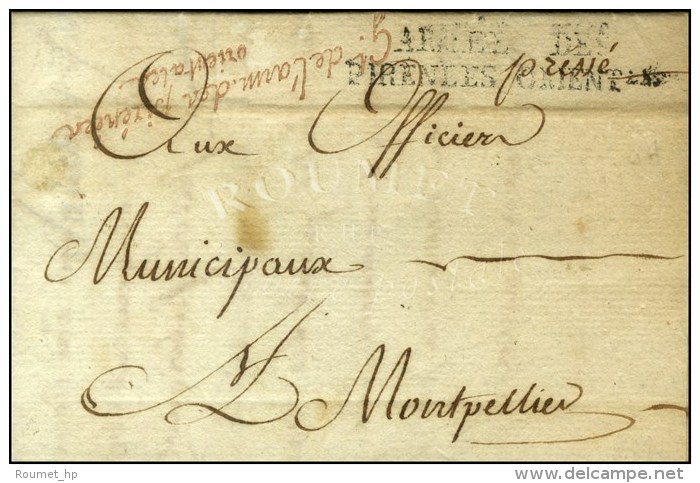 ARMÉE DES
PIRENEES ORIENT.
pressé
G.al de l'arm. des pirénées
orientales
Aux Officiers
Municipaux
A Montpellier
ROUMET
Roumet_hp
delcampe.net